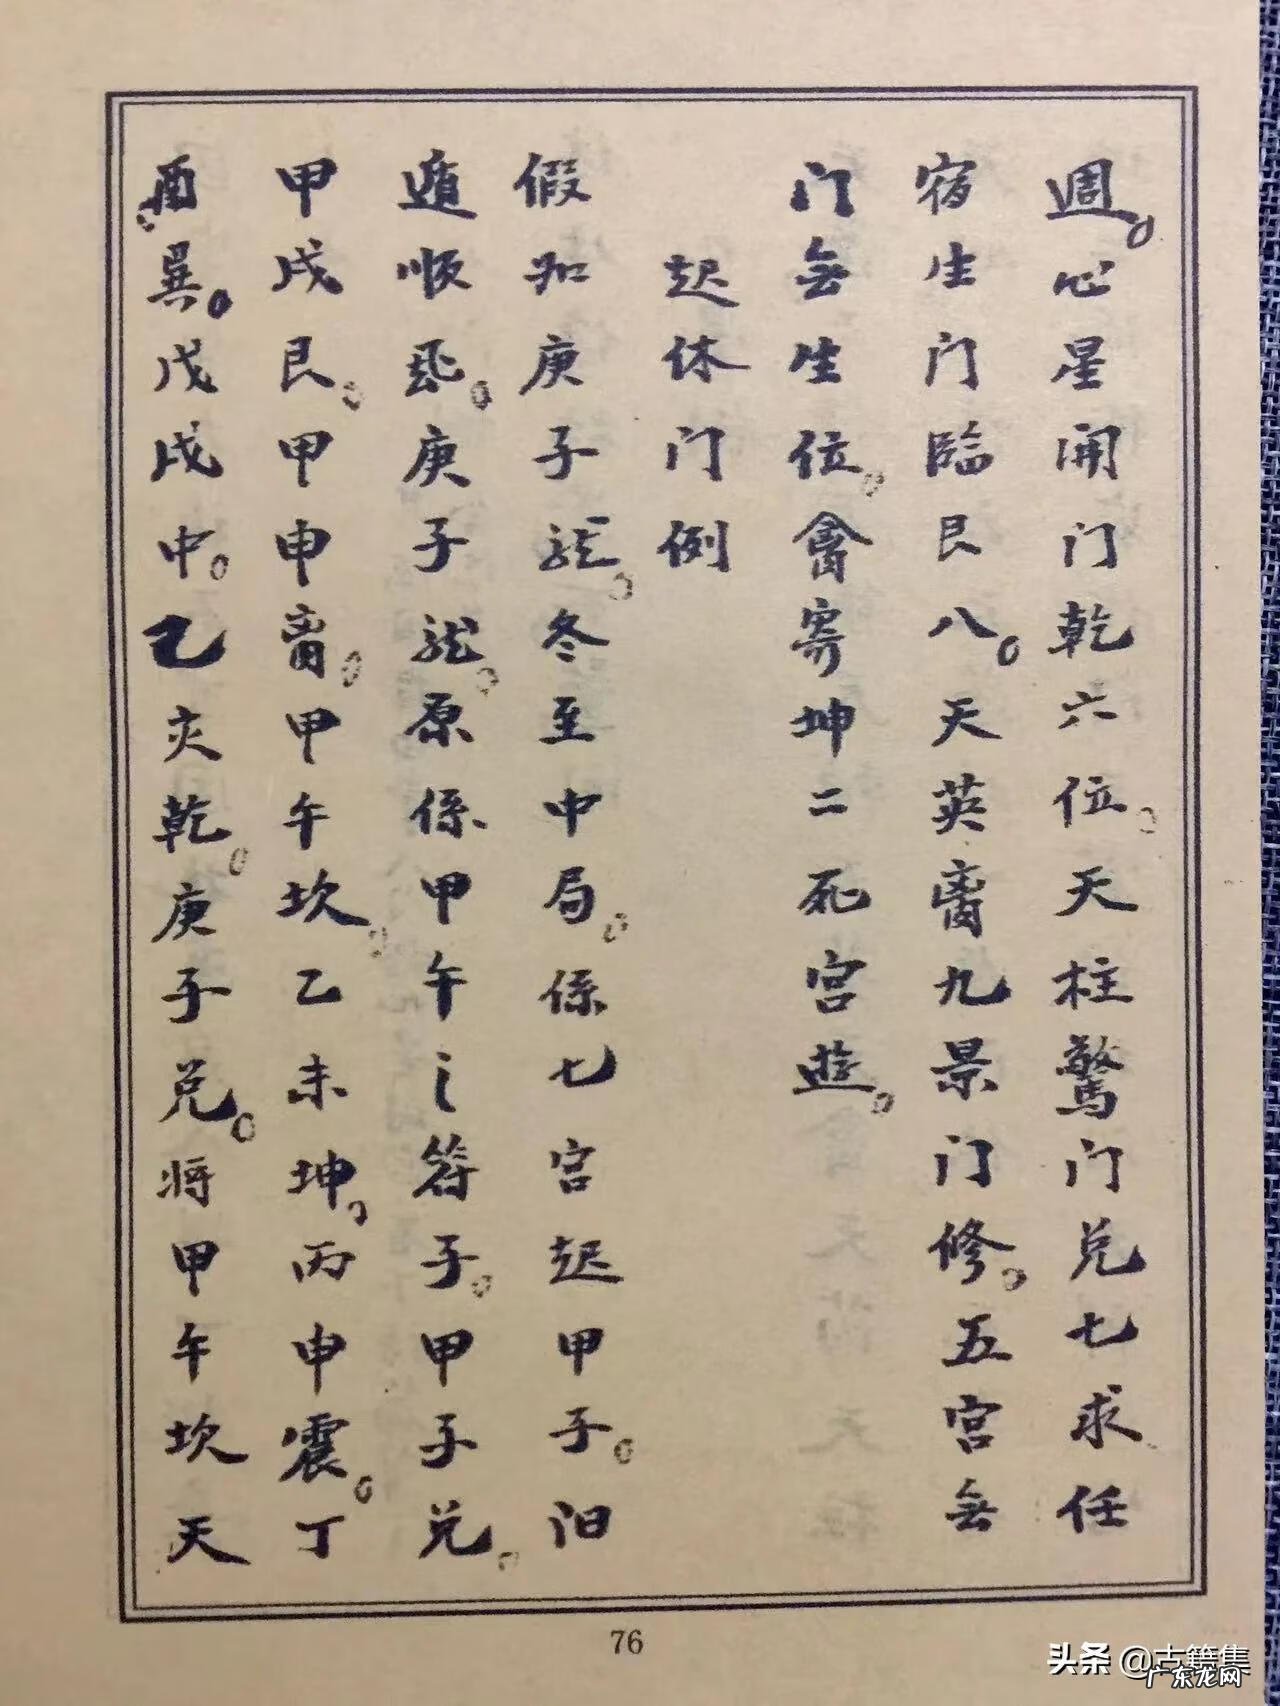 週。心星開门乾六位。天柱驚门兑七求任
宿生门臨艮八。天英离九景门修。五宫无
门无生位。禽寄坤二死宫遊。
起休门例
假如庚子龙。冬至中局。係七宫起甲子。阳
遁顺飛。庚子龙。原係甲午之符子。甲子兑。
甲戌艮。甲申离。甲午坎。乙未坤。丙申震。丁
酉巽。戊戌中。己亥乾。庚子兑。将甲午坎天
76
头条 @古籍集
广东龙网